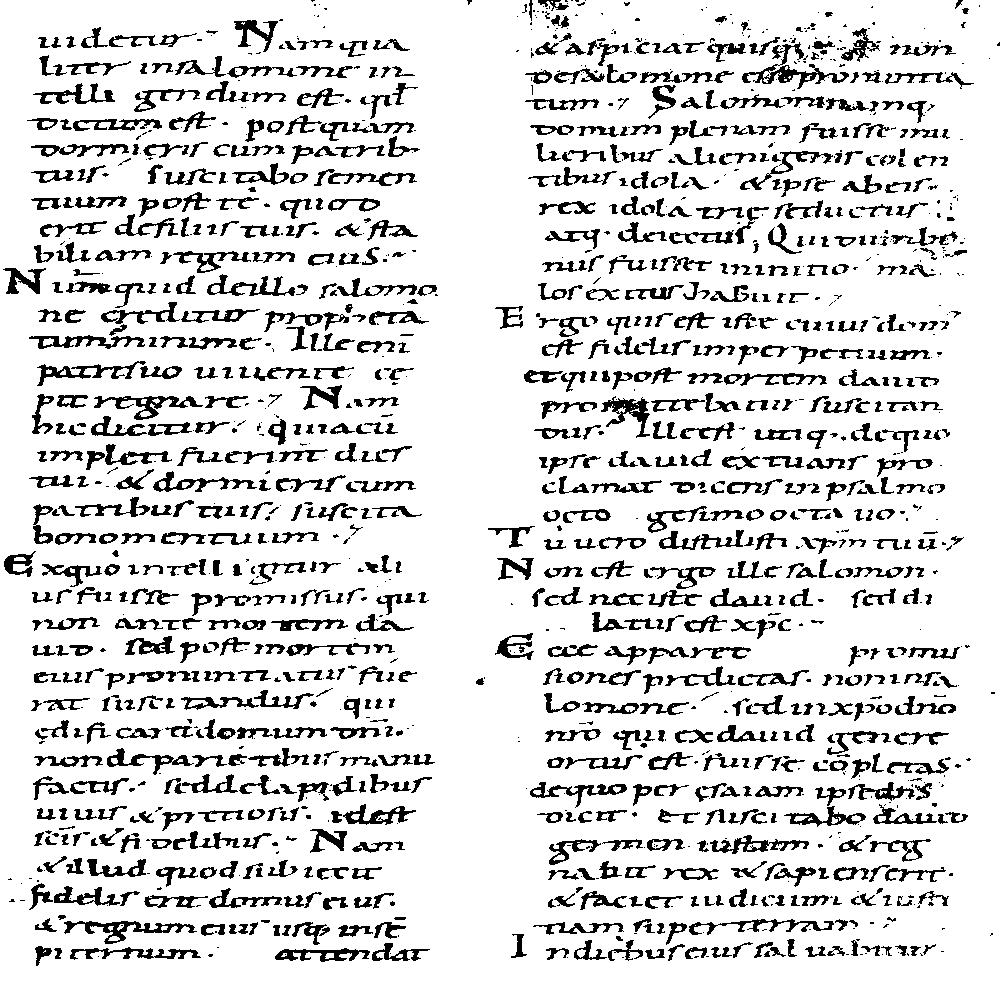 uidetur. Namqua
liter insalomone in
telli gendum est. qd
dictum est. postquam
dormieris cum patrib
tuis. suscitabo semen
tuum post te. quod
erit defiliis tuis. & sta
biliam regnum eius.
Numquid deillo salomo
ne creditur prophetā
tum minime. Ille enī
patri suo uiuente cę
pit regnare. Nam
hic dicitur. Quia cū
impleti fuerint dies
tui. & dormieris cum
patribus tuis. suscita
bo nomen tuum.
Ex quo intelligitur ali
us fuisse promissus. qui
non ante mortem da
uid. sed post mortem
eius pronuntiatus fue
rat suscitandus. qui
ędificaret domum dni.
non de parietibus manu
factis. sed de lapidibus
uiuis & pretiosis. idest
scis & fidelibus. Nam
& illud quod subiecit
fidelis erit domus eius.
& regnum eius usq; insē
piternum. attendat
& aspiciat quisq; non
desalomone esse pronuntia
tum. Salomonis namq;
domum plenam fuisse mu
lieribus alienigenis colen
tibus idola. & ipse abeis.
rex idolatrię seductus
atq; deiectus, Qui duinbo
nus fuisset in initio. ma
los exitus habuit.
Ergo quis est iste cuius dom'
est fidelis imperpetuum.
et qui post mortem dauid
promittebatur suscitan
dus. Ille est utiq;. dequo
ipse dauid extuans pro
clamat dicens in psalmo
octogesimo octauo.
Tu uero distulisti xpm tuū.
Non est ergo ille salomon.
sed nec iste dauid. sed di
latus est xpc.
Ecce apparet promis
siones predictas. non insa
lomone. sed in xpo dno
nro qui ex dauid genere
ortus est. fuisse cōpletas.
de quo per esaiam ipse dns
dicit. et suscitabo dauid
germen iustum. & reg
nabit rex & sapiens erit.
& faciet iudicium & iusti
tiam super terram.
In diebus eius saluabitur